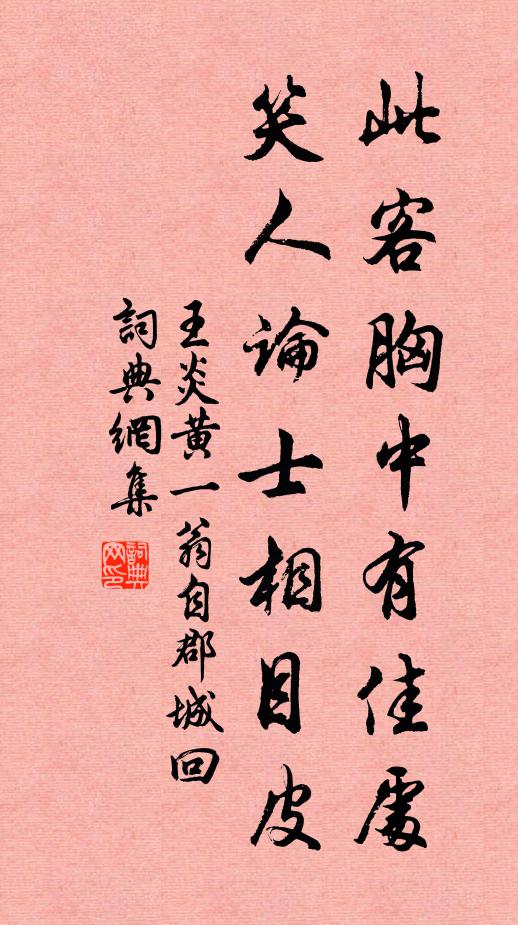 此客胸中有佳處
笑人論士相目皮
王炎黄一翁自郡城回
詞典網集
詞典網印